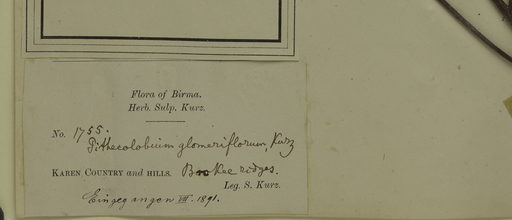 Flora of Birma.
Herb. Sulp. Kurz.
No. 1755.
Pithecolobium glomeriflorum, Kurz
KAREN COUNTRY and HILLS. Bookee ridges.
Leg. S. Kurz.
Eingegangen VIII. 1891.